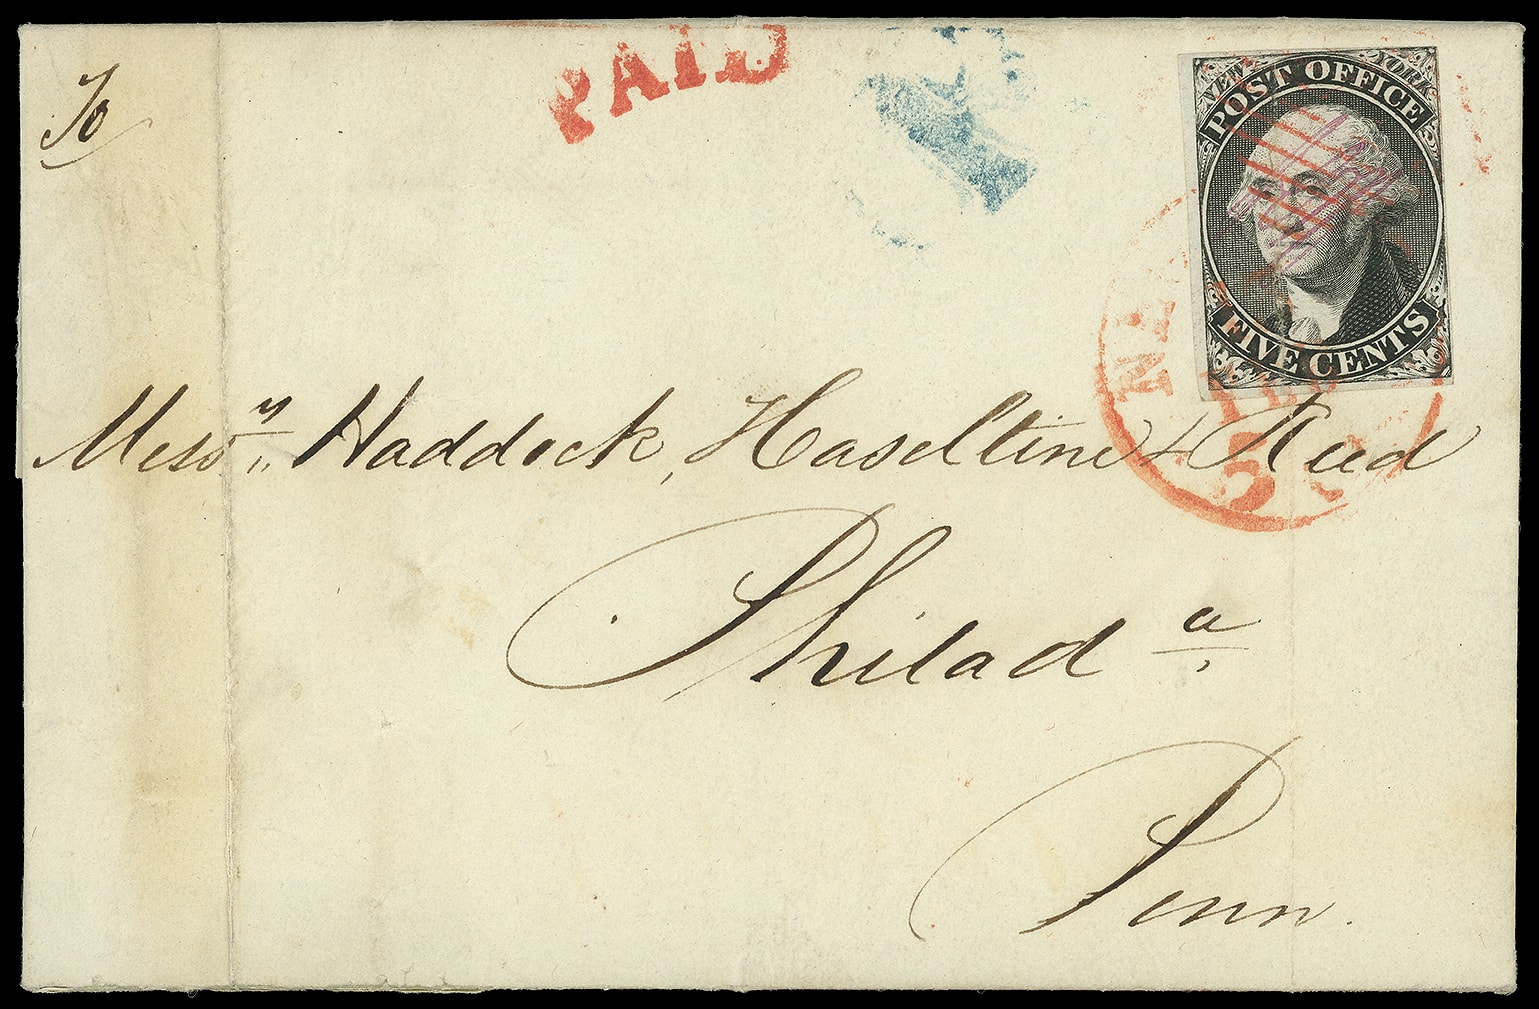 To
PAID
NEW YORK
POST OFFICE
FIVE CENTS
Mess^rs Haddock, Haseltine & Reed
Philad^a
Penn.